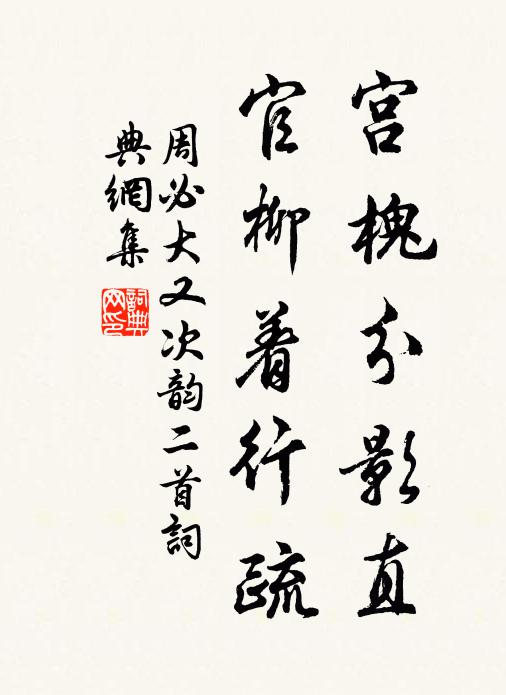 宫槐分影直
官柳着行疏
周必大又次韵二首詞
典網集
詞典
网印